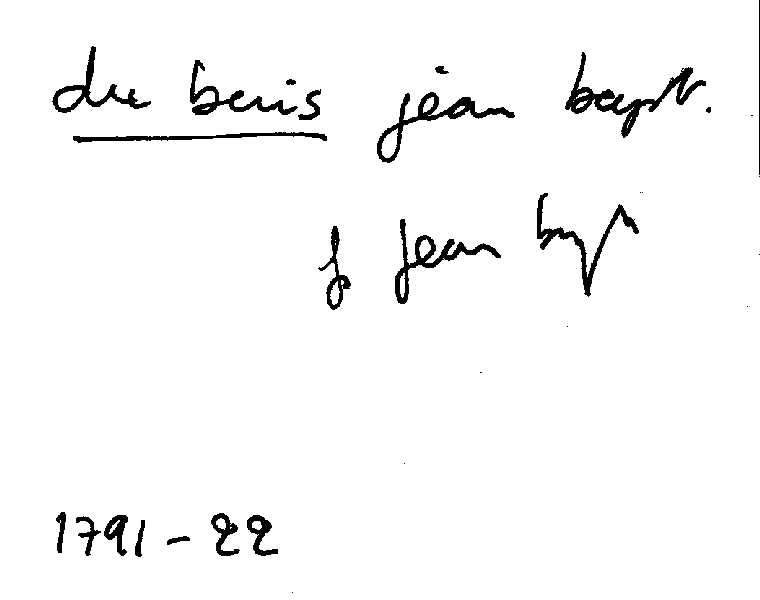 du beris jean bapt.
f jean bapt
1791-22